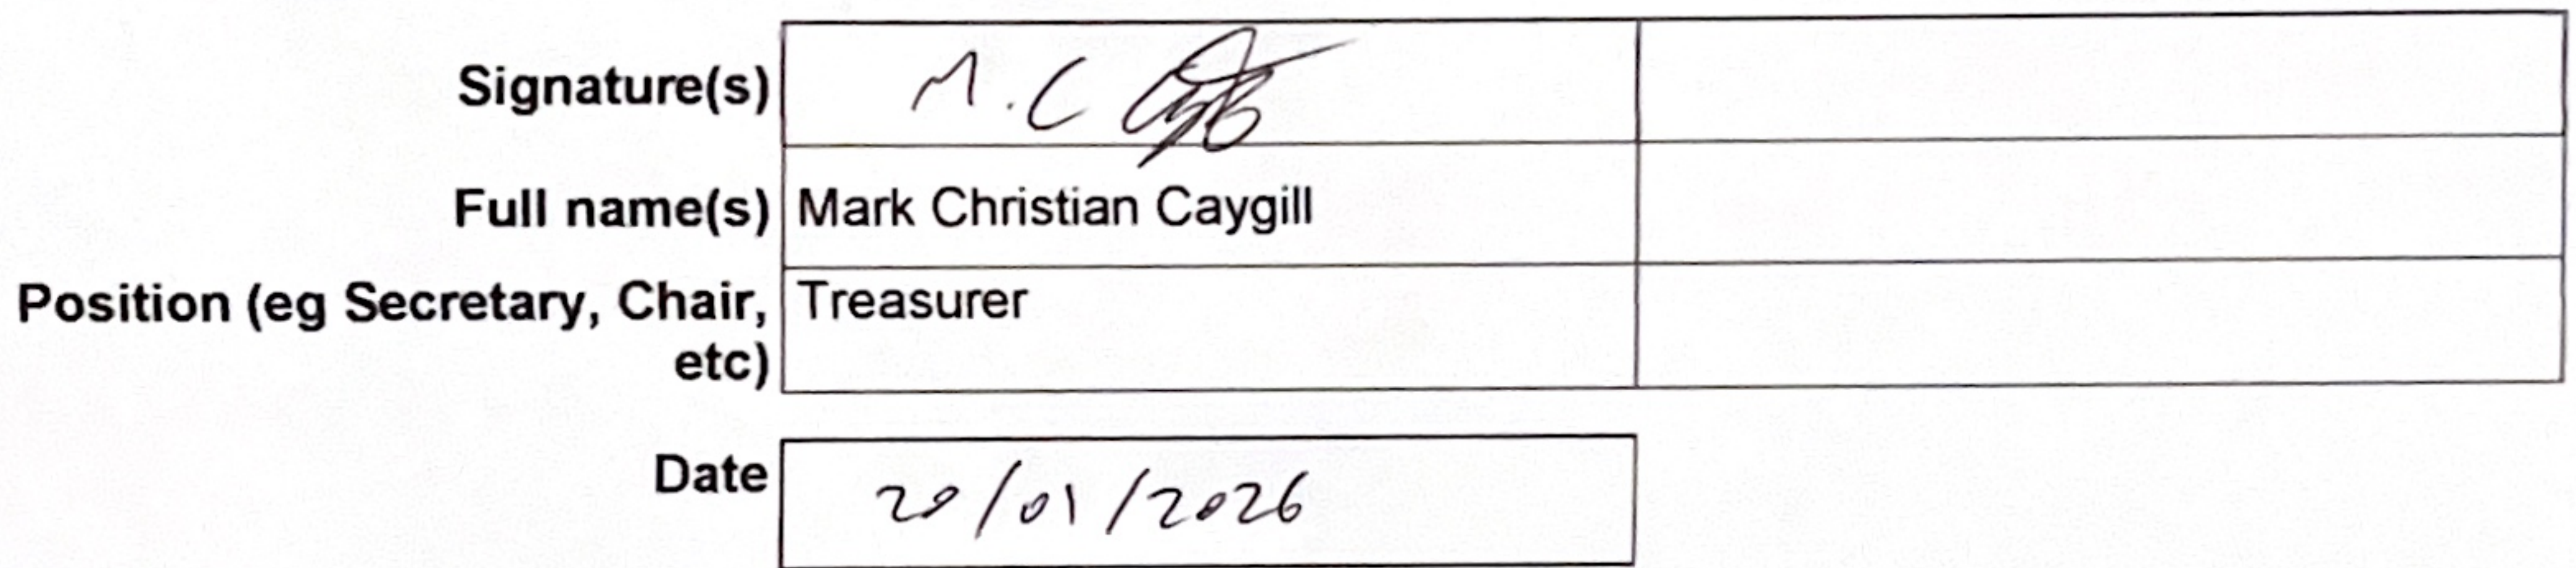 Signature(s) M. C
Full name(s) Mark Christian Caygill
Position (eg Secretary, Chair, Treasurer
etc)
Date 20/01/2026